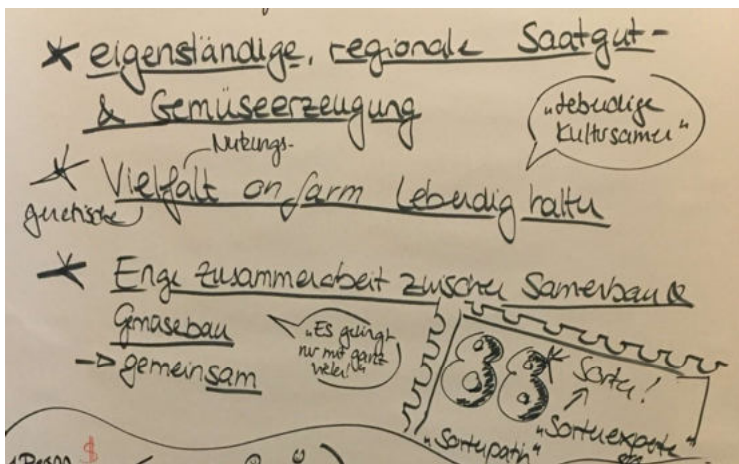 * eigenständige, regionale Saatgut-
& Gemüseerzeugung
"Lebendige
Kultursamen"
Nutzungs-
* Vielfalt on farm lebendig halten
genetische
* Enge Zusammenarbeit zwischen Samenbau &
Gmüsebau
-> gemeinsam
"Es gelingt
nur mit ganz
vielen!"
88 * Sorten!
"Sortenpatin" "Sortenexperte"
1 Person $